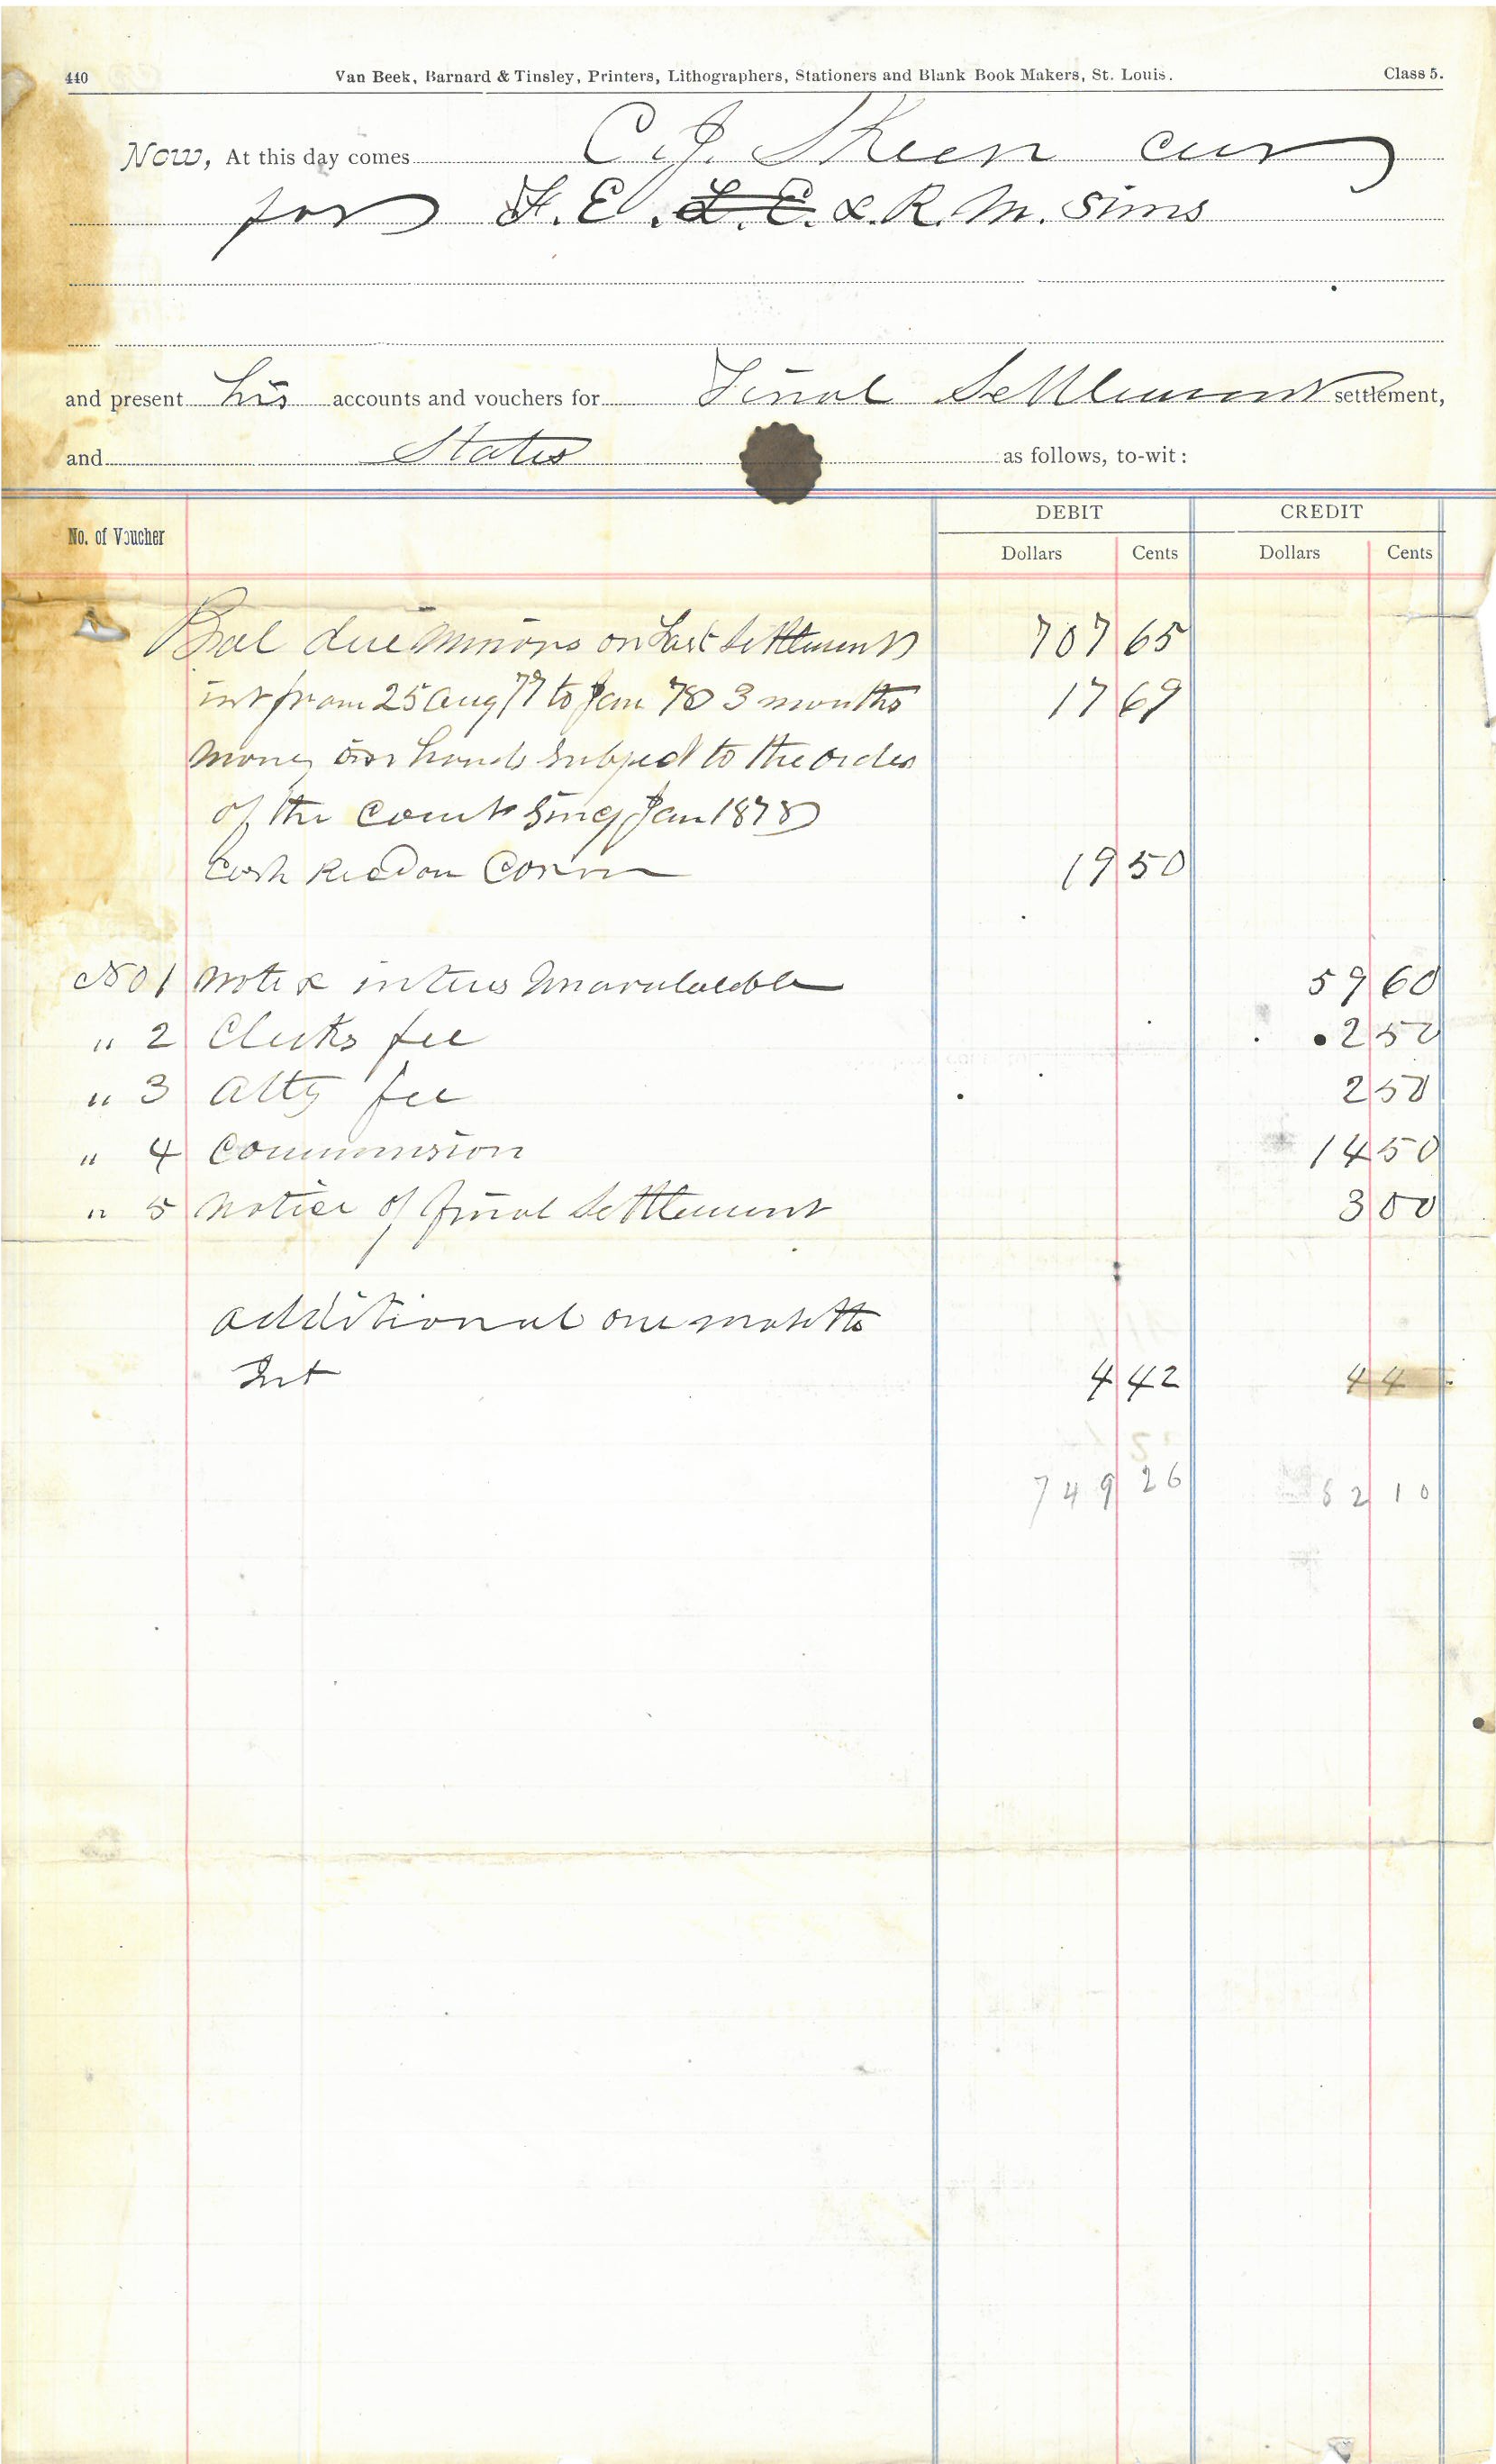 440 Van Beek, Barnard & Tinsley, Printers, Lithographers, Stationers and Blank Book Makers, St. Louis. Class 5.
Now, At this day comes C. J. Skeen cur
for F. E. L. E. & R. M. Sims
and present his accounts and vouchers for Final Settlement settlement,
and States as follows, to-wit:
DEBIT CREDIT
No. of Voucher Dollars Cents Dollars Cents
Bal due minors on Last Settlement 707 65
int from 25 Aug 77 to Jan 78 3 months 17 69
money in hands subject to the order
of the Court Jan 1878
Cash 19 50
No 1 note & 59 60
" 2 Clerks fee 2 50
" 3 Atty fee 2 50
" 4 Commission 14 50
" 5 Notice of final Settlement 3 00
additional one month
Int 4 42 44
749 26 82 10